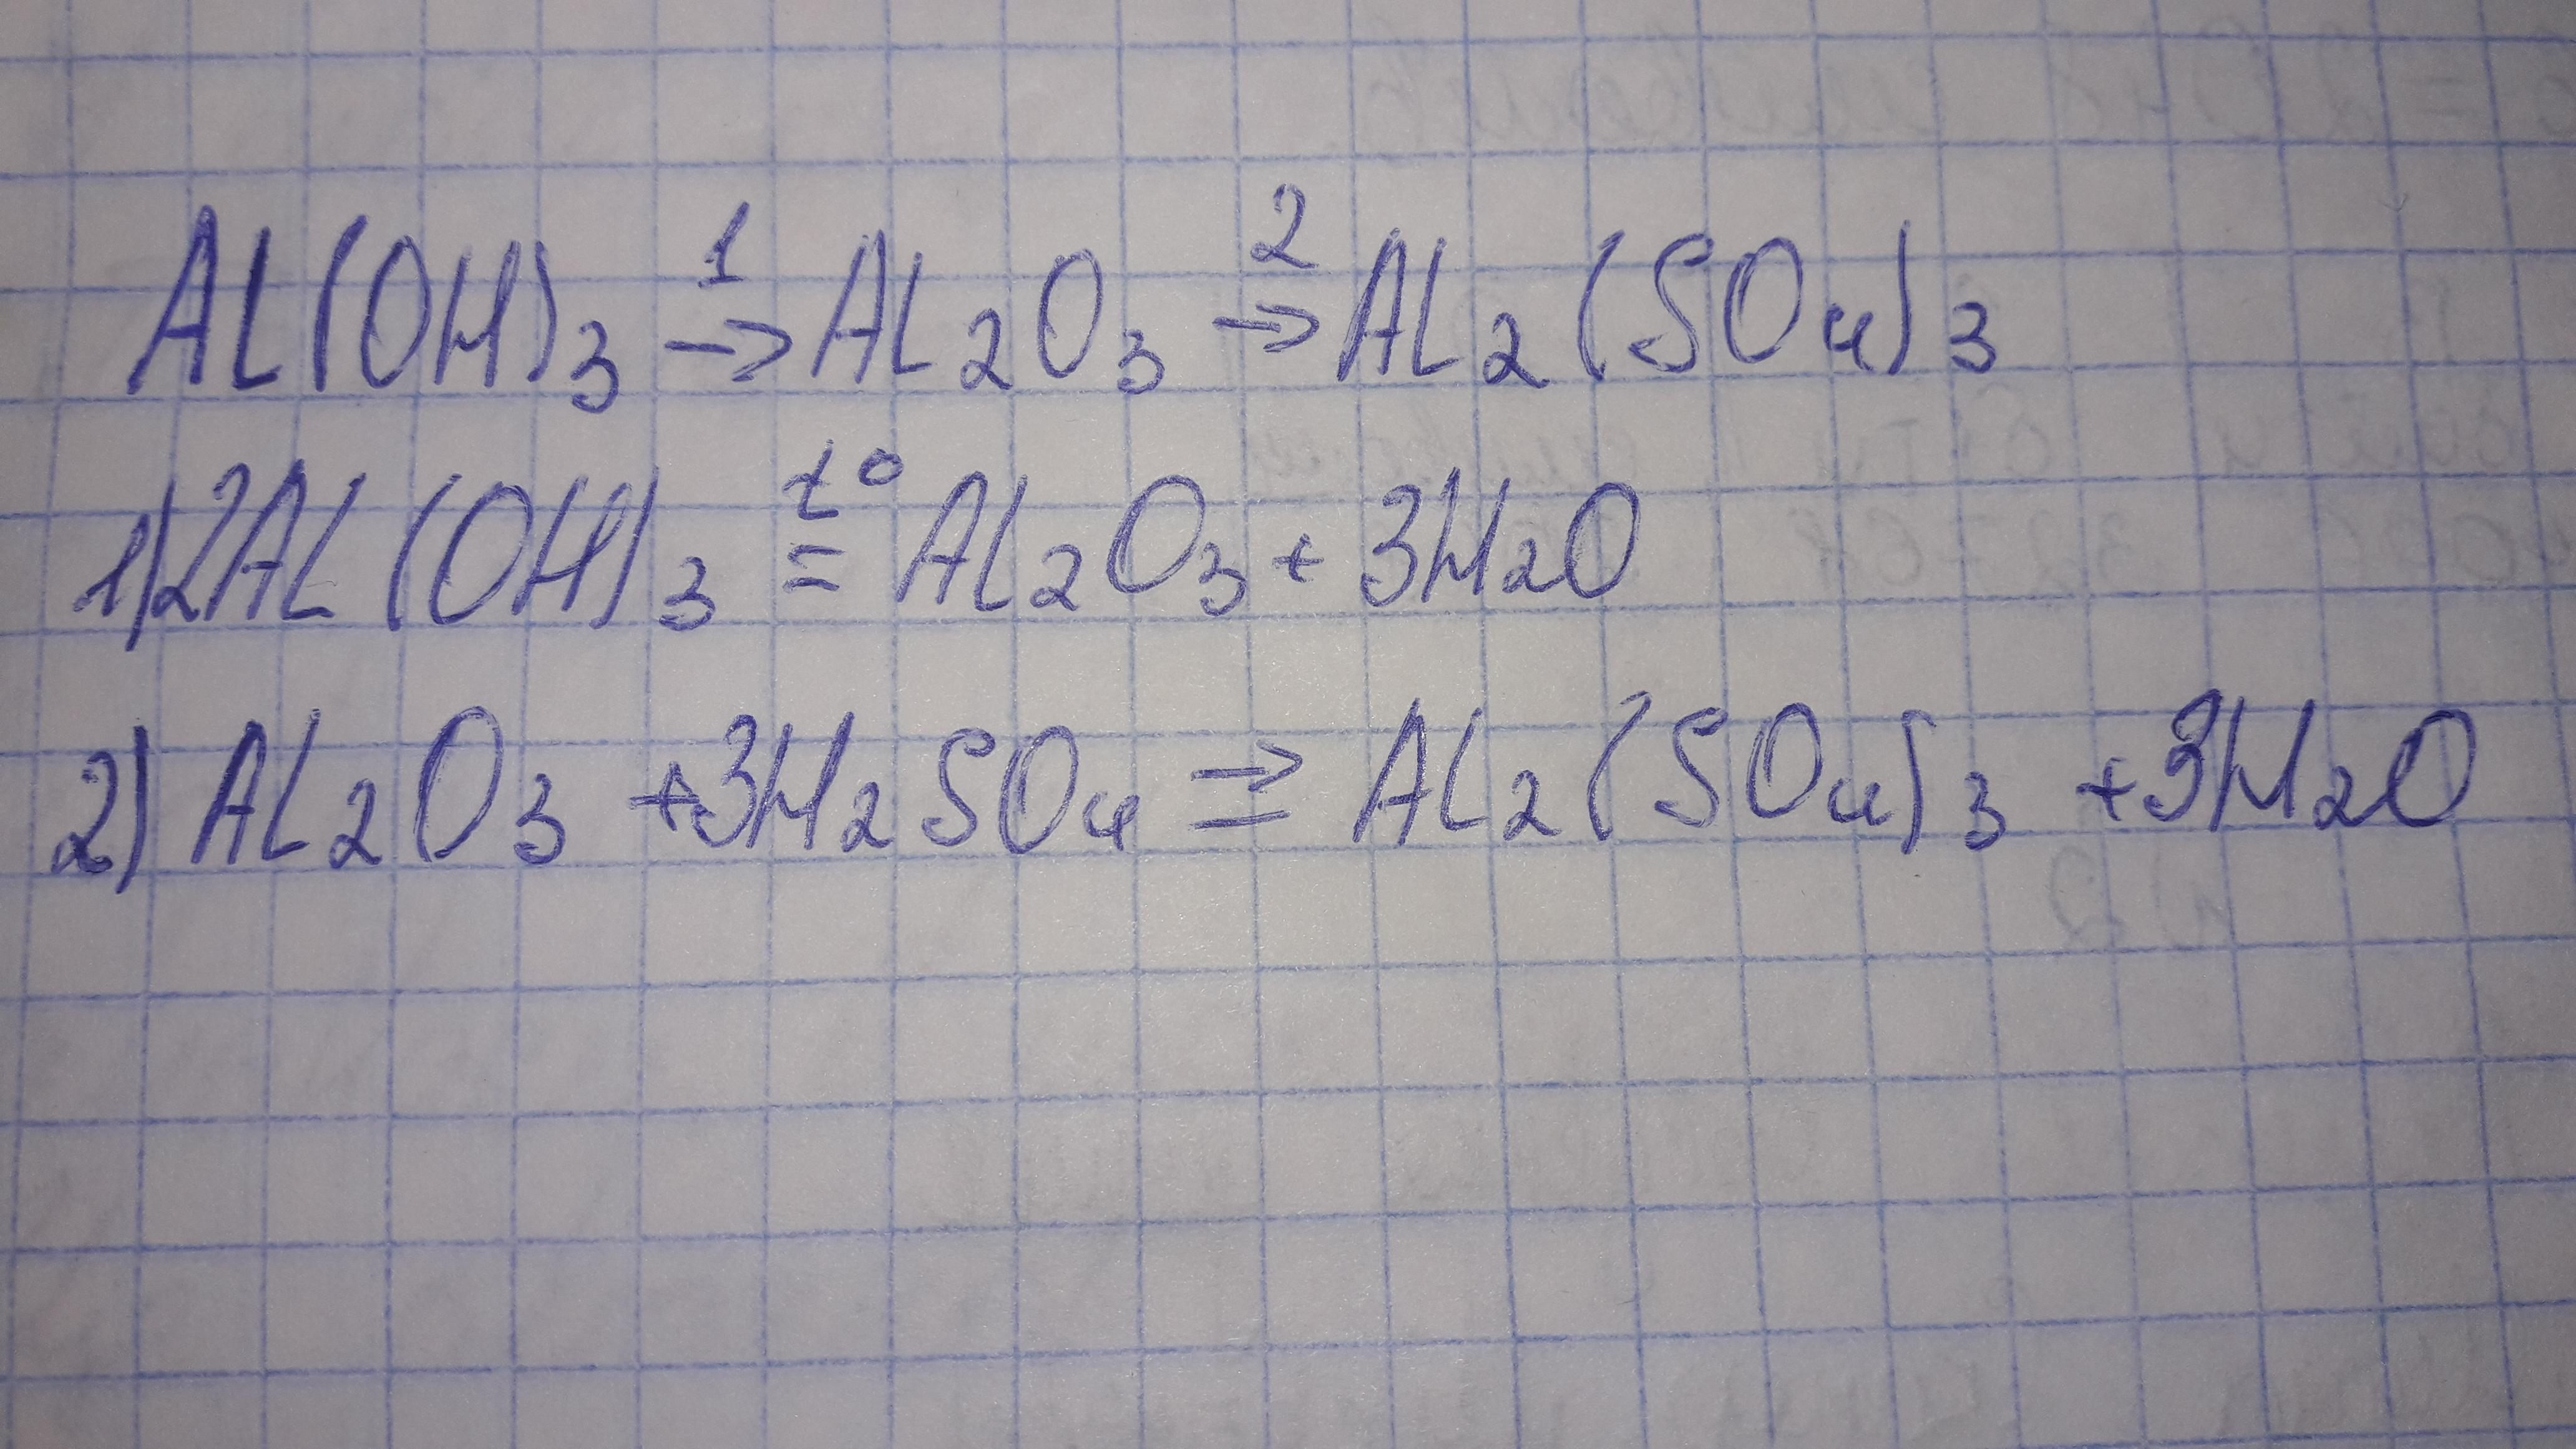 AL(OH)₃ →¹ AL₂O₃ →² AL₂(SO₄)₃
1) 2AL(OH)₃ =t° AL₂O₃ + 3H₂O
2) AL₂O₃ + 3H₂SO₄ ⇒ AL₂(SO₄)₃ + 3H₂O